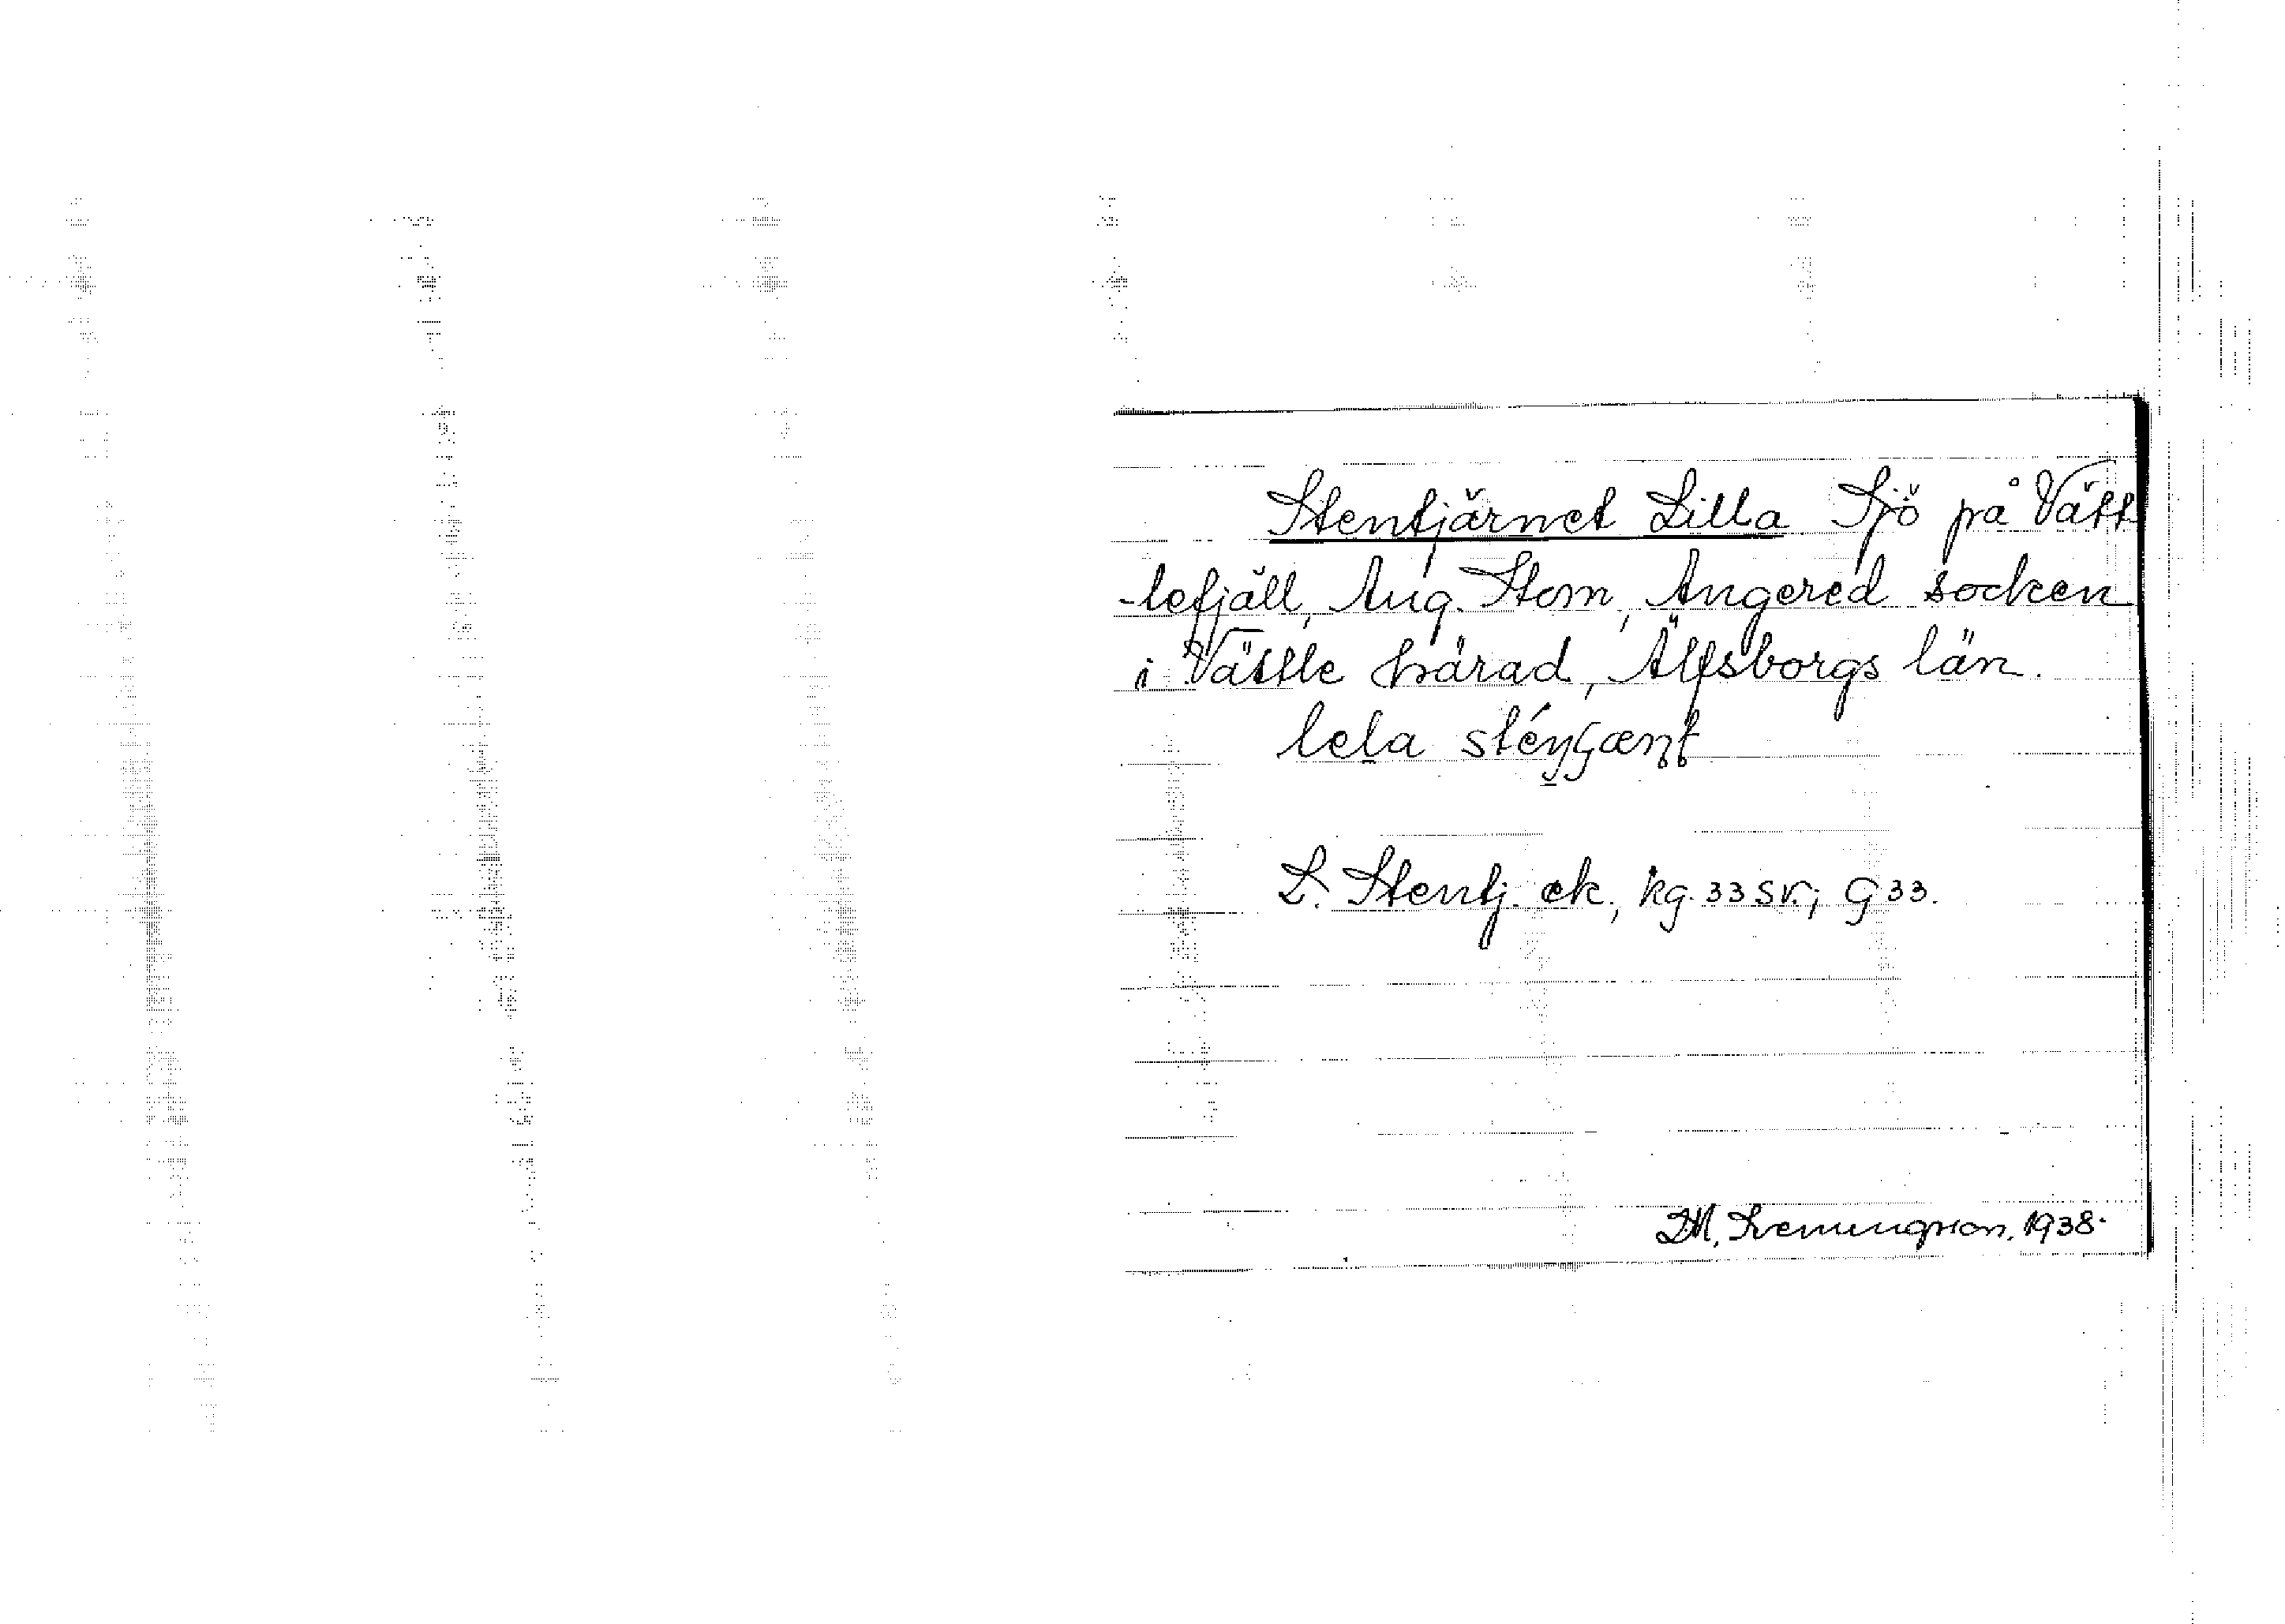 Stentjärnet Lilla Sjö på Vätt
-lefjäll, Aug. Stom, Angered socken
i Vättle härad, Älfsborgs län.
lela
L. Stentj. ek., kg. 33 sv.; G 33.
1938.